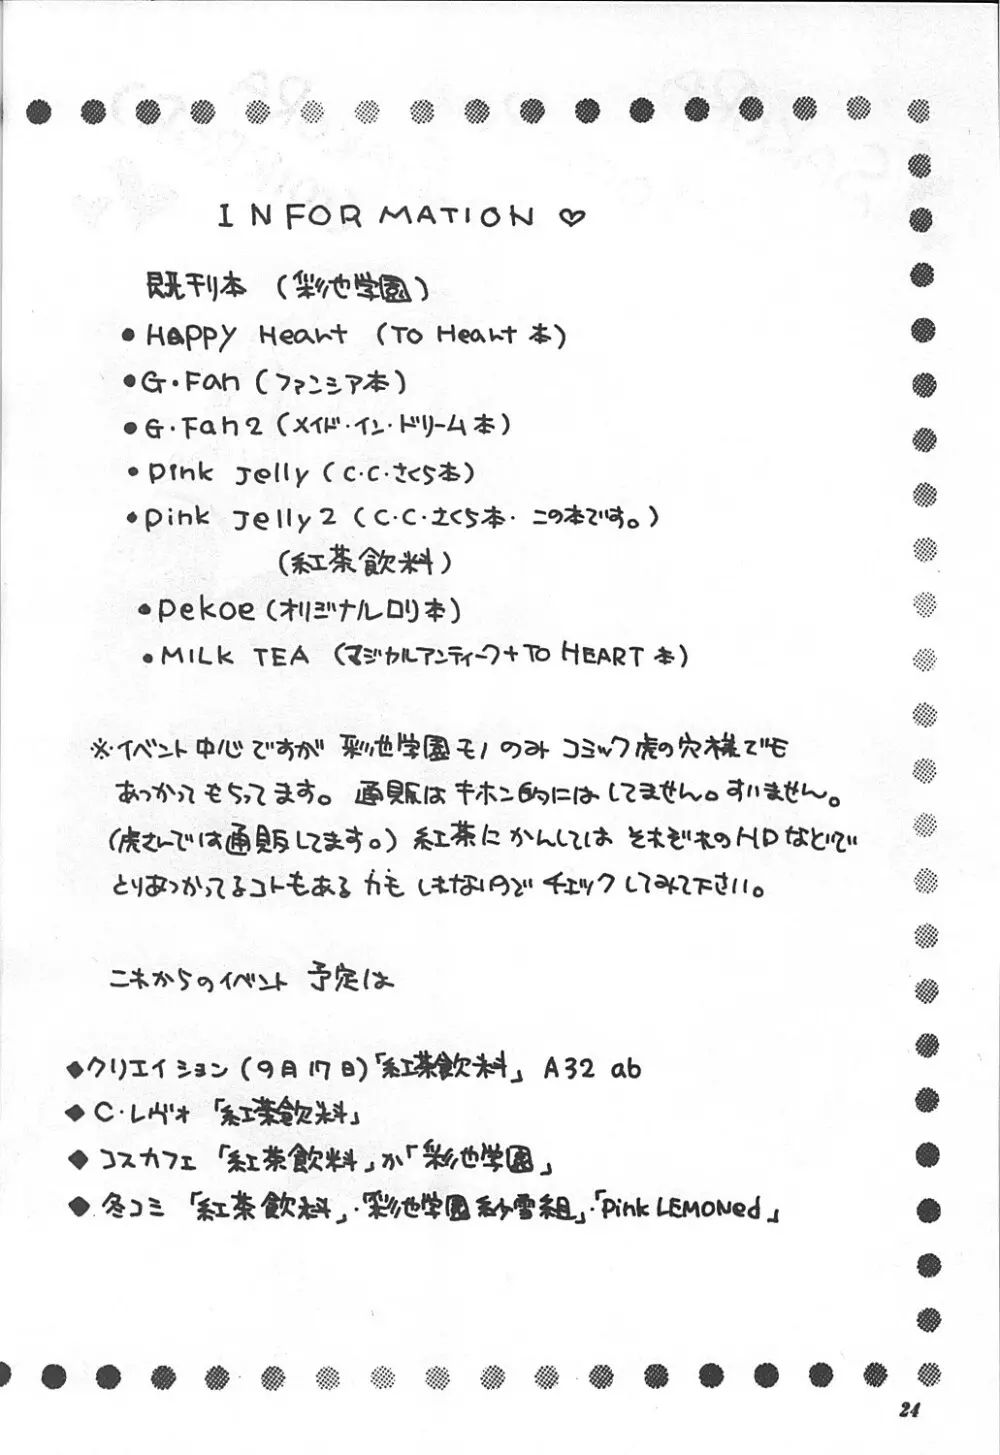 INFORMATION ♡
既刊本 (彩池学園)
●HAPPY Heart (TO Heart本)
●G・Fan (ファンシア本)
●G・Fan2 (メイド・イン・ドリーム本)
●pink Jelly (C・C・さくら本)
●pink Jelly2 (C・C・さくら本・この本です。)
(紅茶飲料)
●pekoe (オリジナルロリ本)
●MILK TEA (マジカルアンティーク+TO HEART本)
※・イベント中心ですが 彩池学園モノのみ コミック虎の穴様でも
あつかってもらってます。通販はキホン的にはしてません。すいません。
(虎さんでは通販してます。) 紅茶にかんしては それぞれのHPなどで
とりあつかってるコトもあるかもしれないのでチェックしてみて下さい。
これからのイベント予定は
◆クリエイション (9月17日)「紅茶飲料」 A32 ab
◆C・レヴォ 「紅茶飲料」
◆コスカフェ 「紅茶飲料」か「彩池学園」
◆冬コミ 「紅茶飲料」・「彩池学園 紗雪組」・「Pink LEMONed」
24